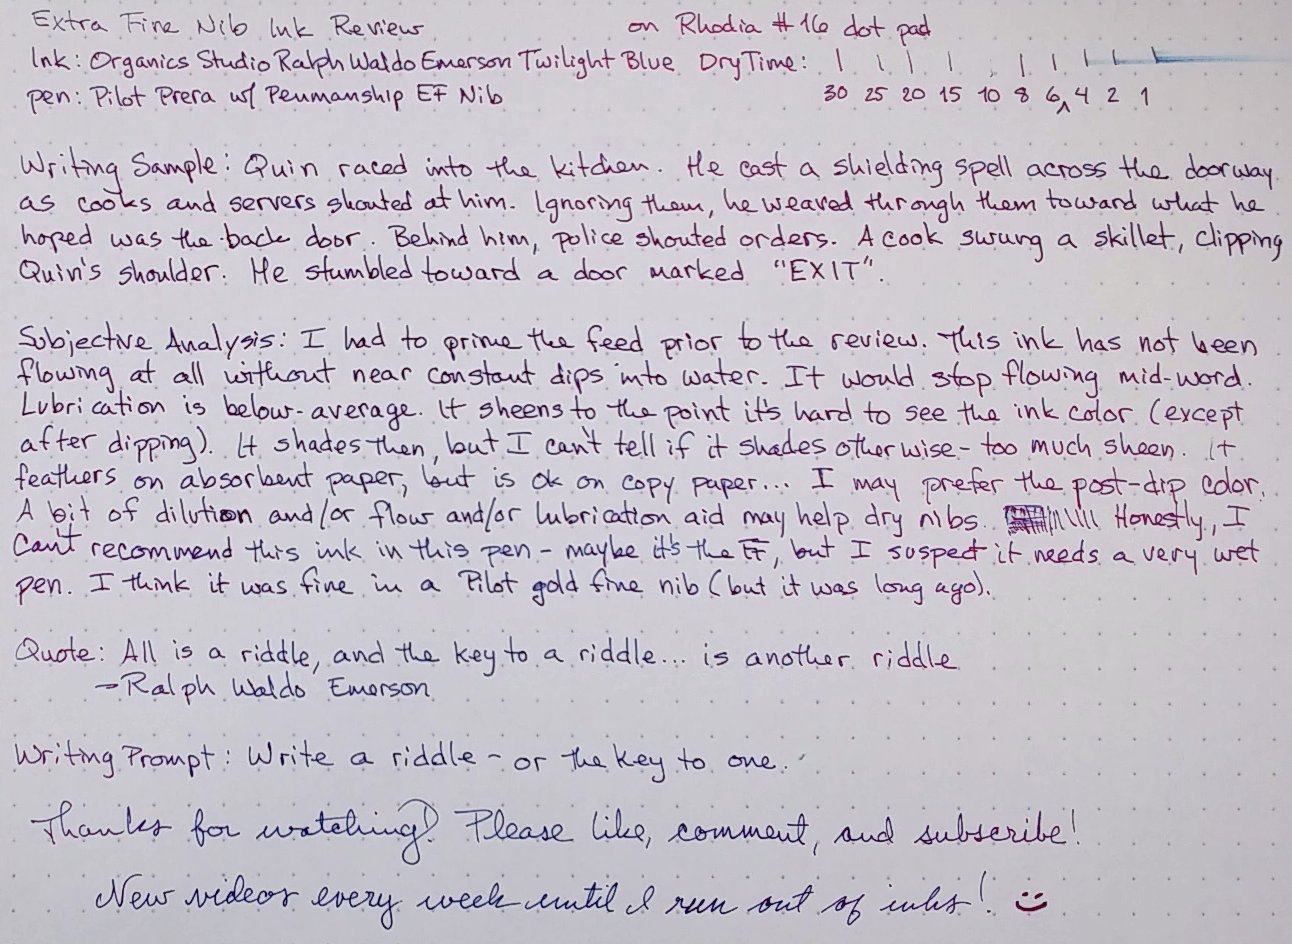 Extra Fine Nib Ink Review on Rhodia #16 dot pad
Ink: Organics Studio Ralph Waldo Emerson Twilight Blue Dry Time:
pen: Pilot Prera w/ Penmanship EF Nib 30 25 20 15 10 8 6 ^ 4 2 1
Writing Sample: Quin raced into the kitchen. He cast a shielding spell across the doorway
as cooks and servers shouted at him. Ignoring them, he weaved through them toward what he
hoped was the back door. Behind him, police shouted orders. A cook swung a skillet, clipping
Quin's shoulder. He stumbled toward a door marked "EXIT".
Subjective Analysis: I had to prime the feed prior to the review. This ink has not been
flowing at all without near constant dips into water. It would stop flowing mid-word.
Lubrication is below-average. It sheens to the point it's hard to see the ink color (except
after dipping). It shades then, but I can't tell if it shades otherwise - too much sheen. It
feathers on absorbent paper, but is ok on copy paper... I may prefer the post-dip color.
A bit of dilution and/or flow and/or lubrication aid may help dry nibs. Honestly, I
can't recommend this ink in this pen - maybe it's the EF, but I suspect it needs a very wet
pen. I think it was fine in a Pilot gold fine nib (but it was long ago).
Quote: All is a riddle, and the key to a riddle... is another riddle
- Ralph Waldo Emerson
Writing Prompt: Write a riddle - or the key to one.
Thanks for watching! Please like, comment, and subscribe!
New videos every week until I run out of inks!